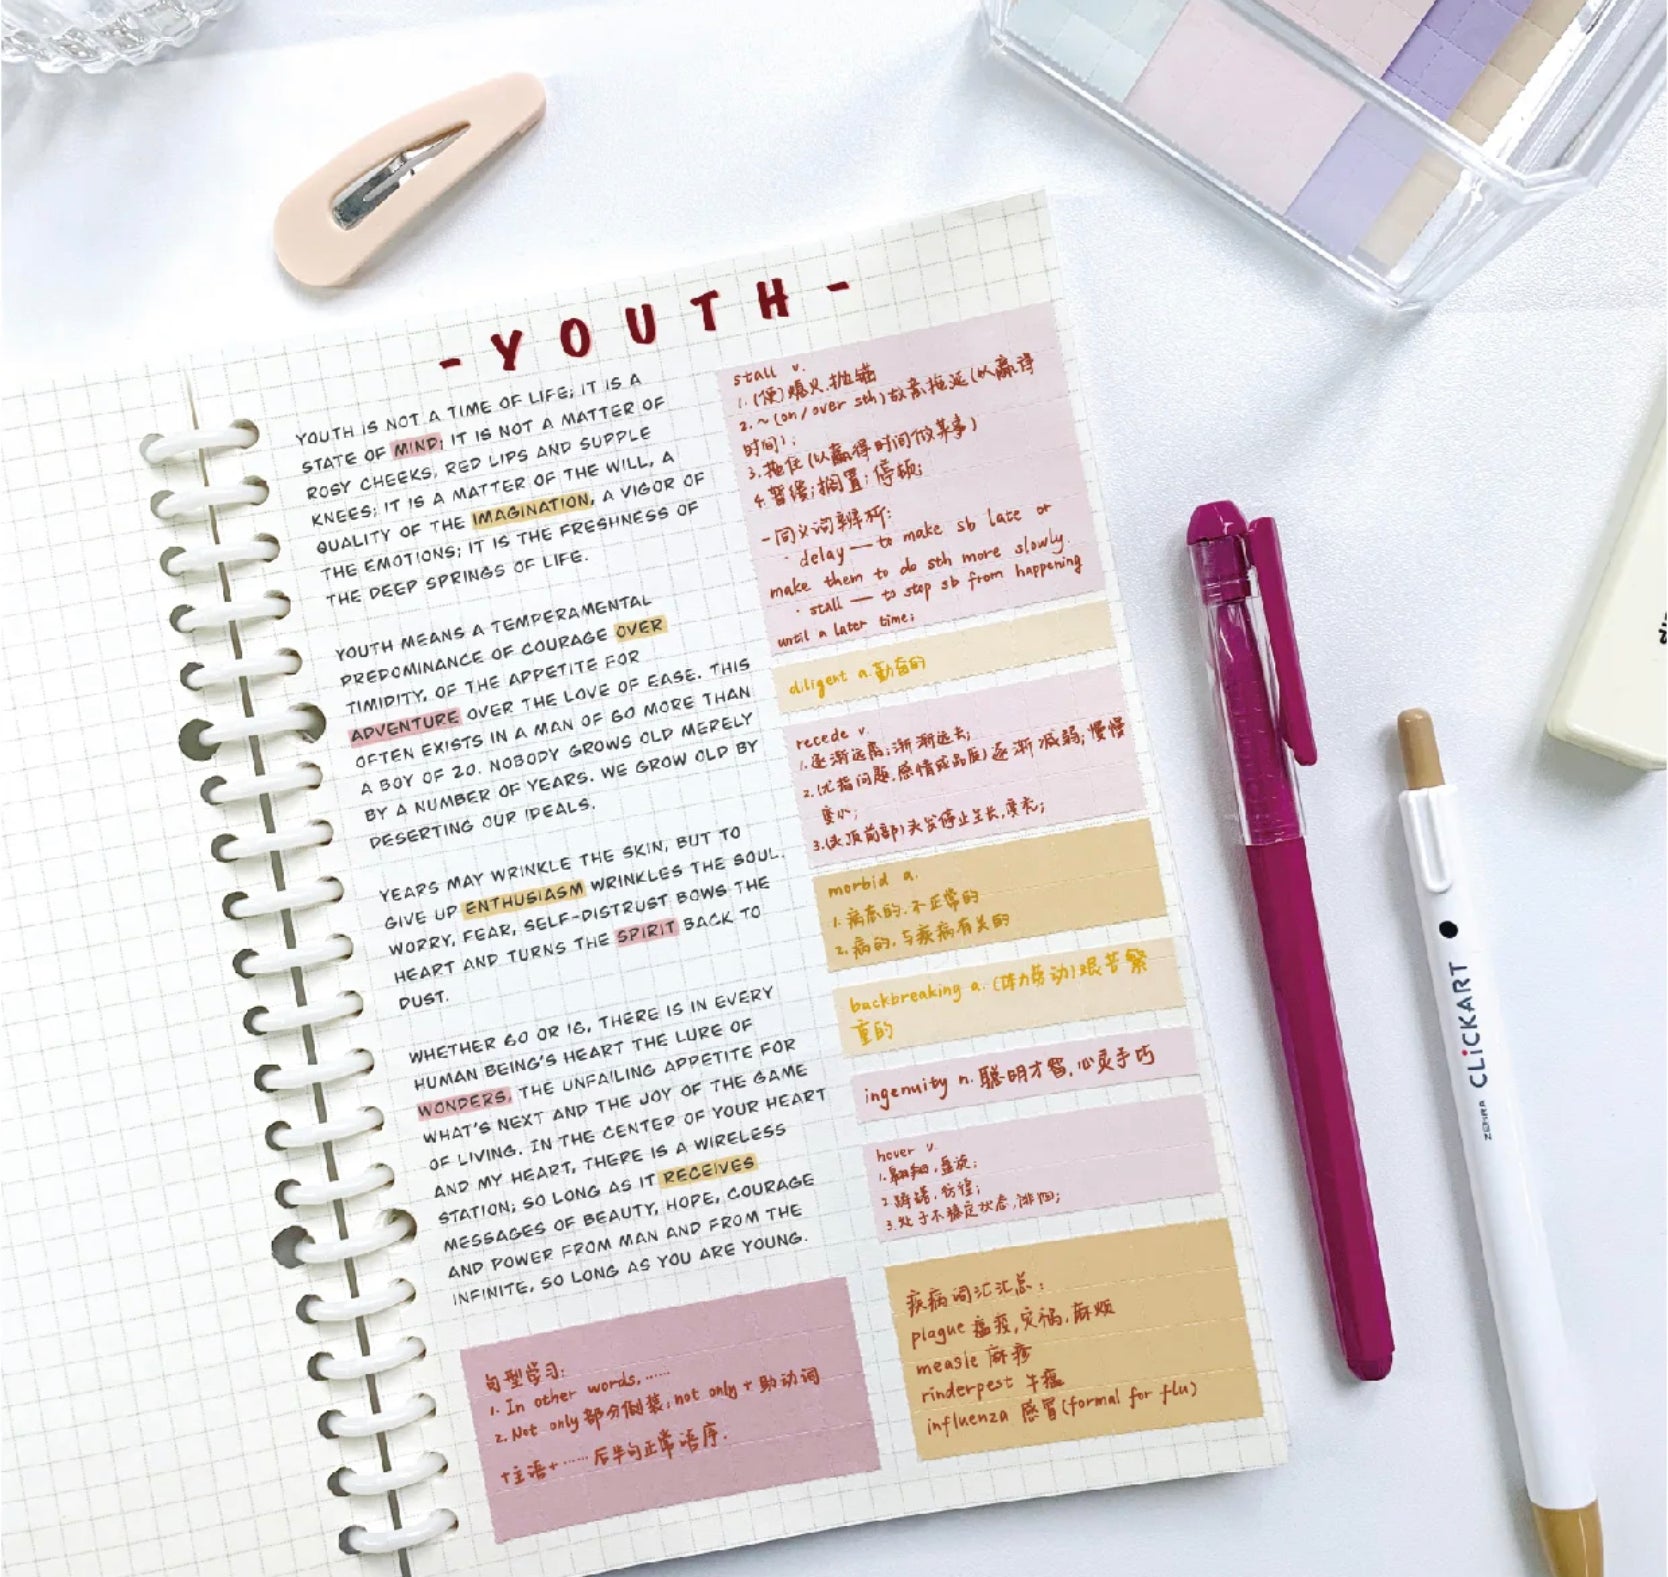 - YOUTH -
YOUTH IS NOT A TIME OF LIFE; IT IS A
STATE OF MIND; IT IS NOT A MATTER OF
ROSY CHEEKS, RED LIPS AND SUPPLE
KNEES; IT IS A MATTER OF THE WILL, A
QUALITY OF THE IMAGINATION, A VIGOR OF
THE EMOTIONS; IT IS THE FRESHNESS OF
THE DEEP SPRINGS OF LIFE.
YOUTH MEANS A TEMPERAMENTAL
PREDOMINANCE OF COURAGE OVER
TIMIDITY, OF THE APPETITE FOR
ADVENTURE OVER THE LOVE OF EASE. THIS
OFTEN EXISTS IN A MAN OF 60 MORE THAN
A BOY OF 20. NOBODY GROWS OLD MERELY
BY A NUMBER OF YEARS. WE GROW OLD BY
DESERTING OUR IDEALS.
YEARS MAY WRINKLE THE SKIN, BUT TO
GIVE UP ENTHUSIASM WRINKLES THE SOUL.
WORRY, FEAR, SELF-DISTRUST BOWS THE
HEART AND TURNS THE SPIRIT BACK TO
DUST.
WHETHER 60 OR 16, THERE IS IN EVERY
HUMAN BEING'S HEART THE LURE OF
WONDERS, THE UNFAILING APPETITE FOR
WHAT'S NEXT AND THE JOY OF THE GAME
OF LIVING. IN THE CENTER OF YOUR HEART
AND MY HEART, THERE IS A WIRELESS
STATION; SO LONG AS IT RECEIVES
MESSAGES OF BEAUTY, HOPE, COURAGE
AND POWER FROM MAN AND FROM THE
INFINITE, SO LONG AS YOU ARE YOUNG.
句型学习:
1. In other words, ······
2. Not only 部分倒装; not only + 助动词
+主语+ ······ 后半句正常语序.
stall v.
1. (使)熄火,抛锚
2. ~ (on / over sth) 故意拖延(以赢得
时间);
3. 拖住(以赢得时间做某事)
4. 暂缓;搁置;停顿;
- 同义词辨析:
· delay — to make sb late or
make them to do sth more slowly.
· stall — to stop sb from happening
until a later time;
diligent a. 勤奋的
recede v.
1. 逐渐远离;渐渐远去;
2. (尤指问题,感情或品质)逐渐减弱;慢慢
变小;
3. (头顶前部)头发停止生长,变秃;
morbid a.
1. 病态的,不正常的
2. 病的,与疾病有关的
backbreaking a. (体力劳动)艰苦繁
重的
ingenuity n. 聪明才智,心灵手巧
hover v.
1. 翱翔,盘旋;
2. 踌躇,彷徨;
3. 处于不稳定状态,徘徊;
疾病词汇汇总:
plague 瘟疫,灾祸,麻烦
measle 麻疹
rinderpest 牛瘟
influenza 感冒(formal for flu)
ZEBRA CLiCKART